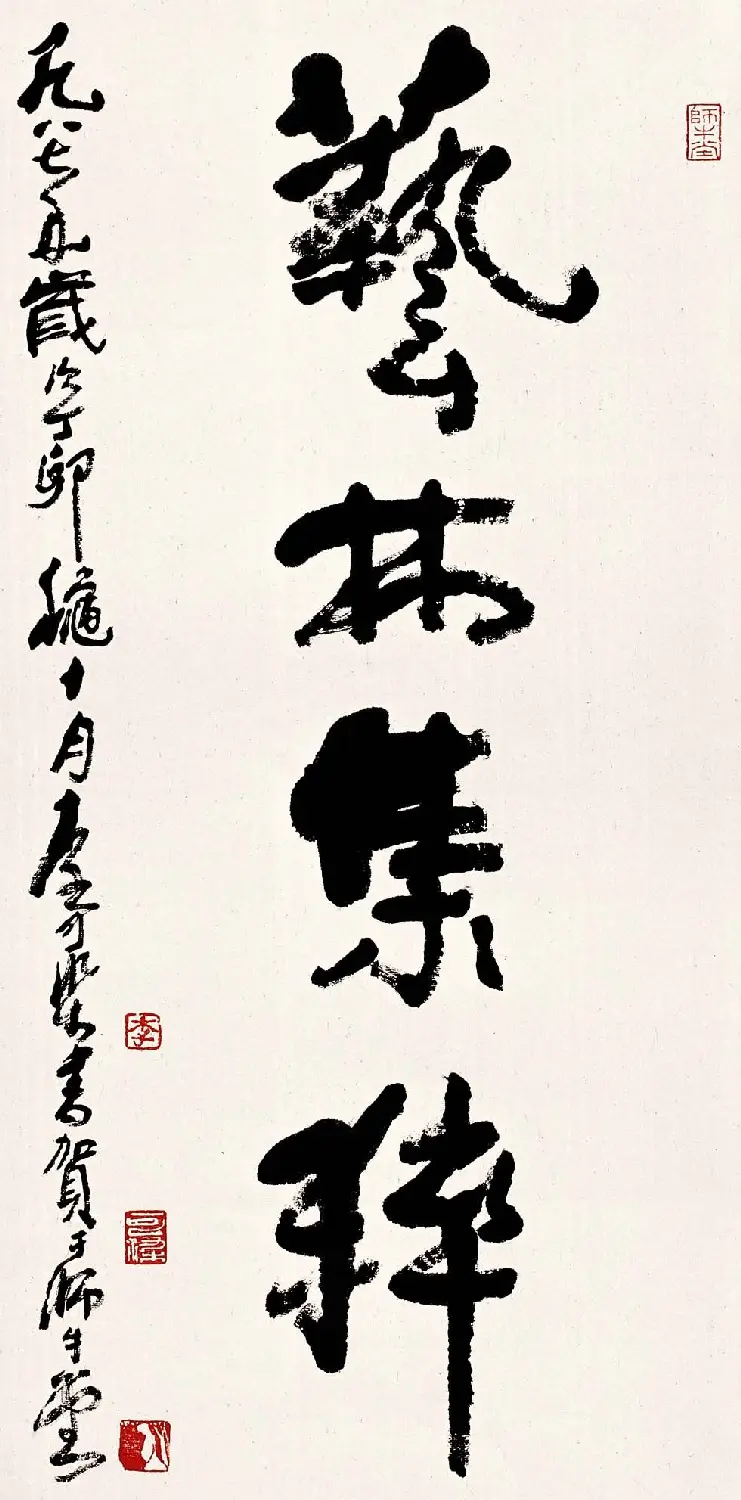 師牛堂
藝林集粹
一九八七年歲次丁卯龝十月李可染書賀于師牛堂
李